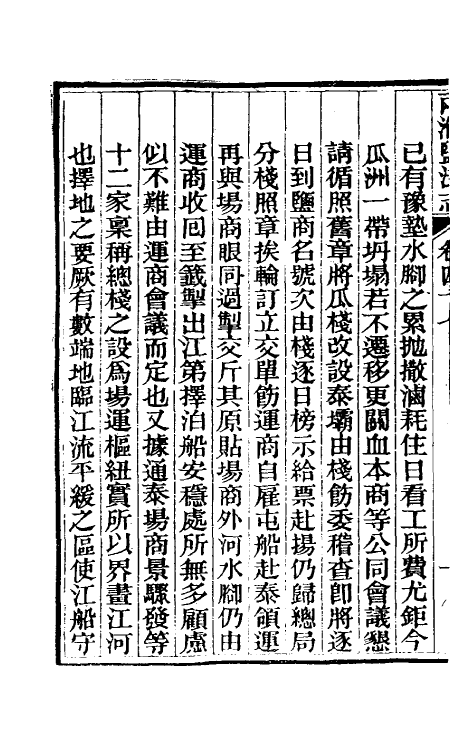 兩淮鹽法志 卷四十七
已有豫墊水腳之累拋撒滷耗住日看工所費尤鉅今
瓜洲一帶坍塌若不遷移更關血本商等公同會議懇
請循照舊章將瓜棧改設泰壩由棧飭委稽查卽將逐
日到鹽商名號次由棧逐日榜示給票赴揚仍歸總局
分棧照章挨輪訂立交單飭運商自雇屯船赴泰領運
再與場商眼同過掣交斤其原貼場商外河水腳仍由
運商收回至籤掣出江第擇泊船安穩處所無多顧慮
似不難由運商會議而定也又據通泰場商景驟發等
十二家稟稱總棧之設爲場運樞紐實所以界畫江河
也擇地之要厥有數端地臨江流平緩之區使江船守